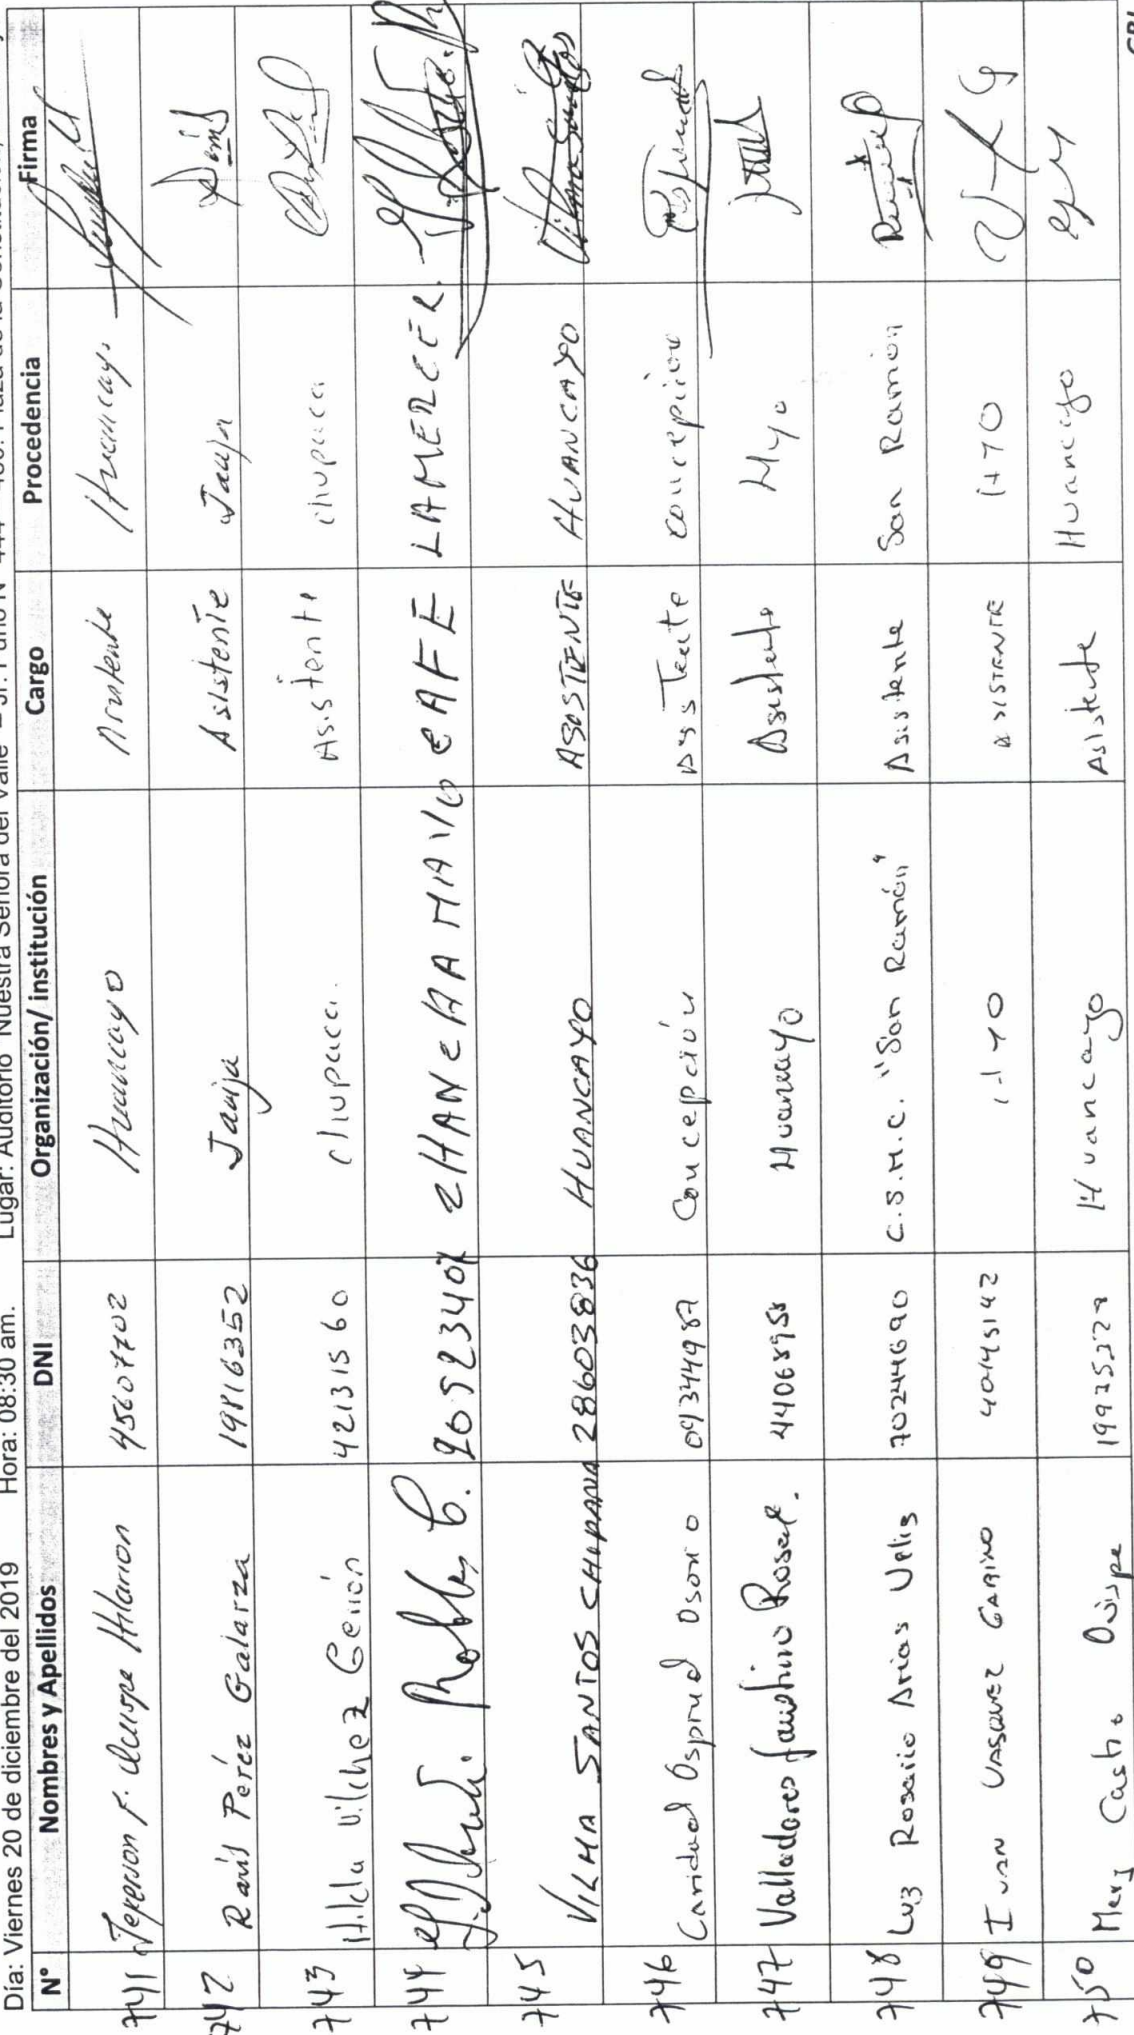 Día: Viernes 20 de diciembre del 2019 Hora: 08:30 am. Lugar: Auditorio Nuestra Señora del Valle – Jr. Puno N° 444
N° Nombres y Apellidos DNI Organización/ institución Cargo Procedencia Firma
741 Jeferson F. Quispe Hilarion 45607702 Huancayo Asistente Huancayo
742 Raúl Pérez Galarza 19816352 Jauja Asistente Jauja
743 Hilda Vilchez Cerrón 42131560 chupaca. Asistente chupaca
744 Robles C. CHANCHAMAYO CAFE LAMERCER.
745 VILMA SANTOS CHUPANA 28603836 HUANCAYO ASOSTENTE HUANCAYO
746 Caridad Osorio 04344987 Concepción Asstente concepción
747 Valladares Faustino Rosal. 44068958 Huancayo Asistente Hyo
748 Luz Rosario Arias Veliz 70244690 C.S.M.C. "San Ramón" Asistente San Ramón
749 Ivan VASQUEZ GARINO 40445142 HYO ASISTENTE HYO
750 Mery Castro Quispe 19925329 Huancayo Asistente Huancayo